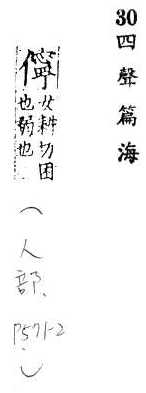 30四聲篇海
儜
女耕切困
也弱也
（人部、P571-2.）